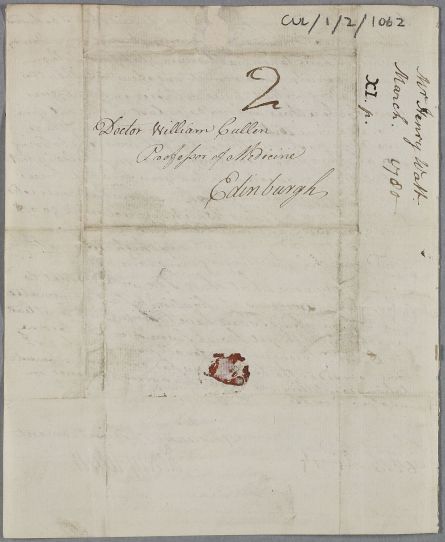 CUL/1/2/1062
2
Doctor William Cullen
Professor of Medicine
Edinburgh
Mr Henry Watt
March. 1780
XI. p.